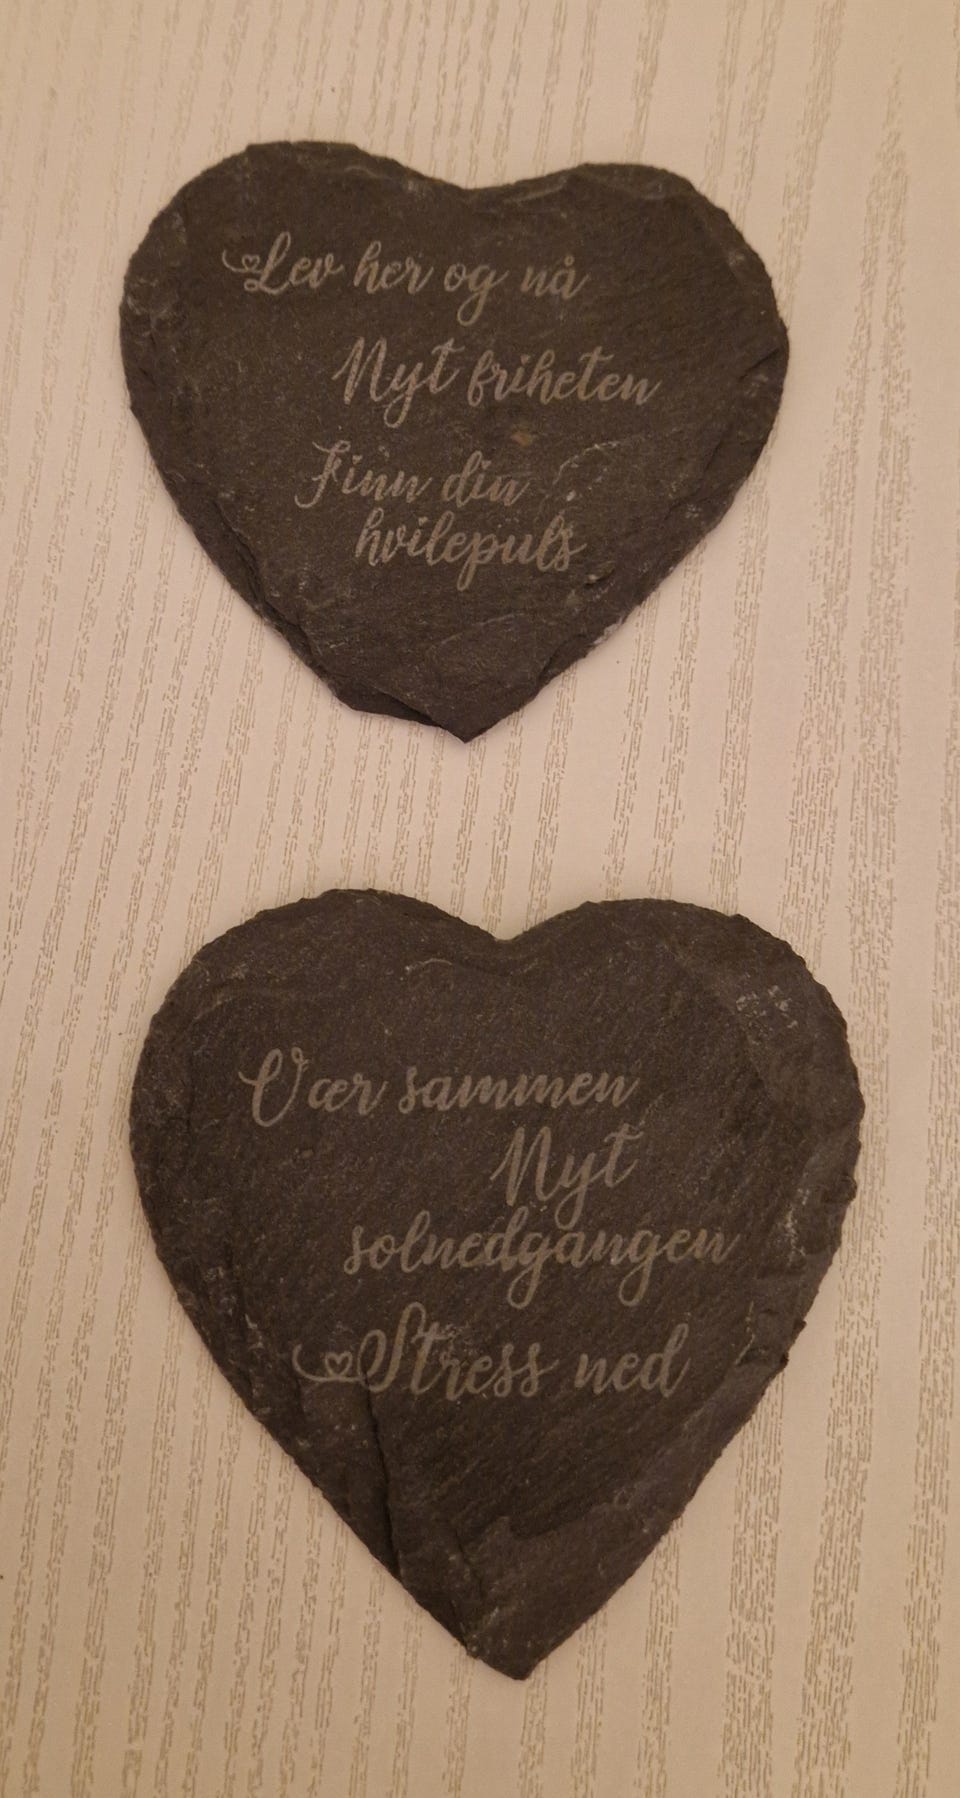 Lev her og nå
Nyt friheten
Finn din
hvilepuls
Vær sammen
Nyt
solnedgangen
Stress ned